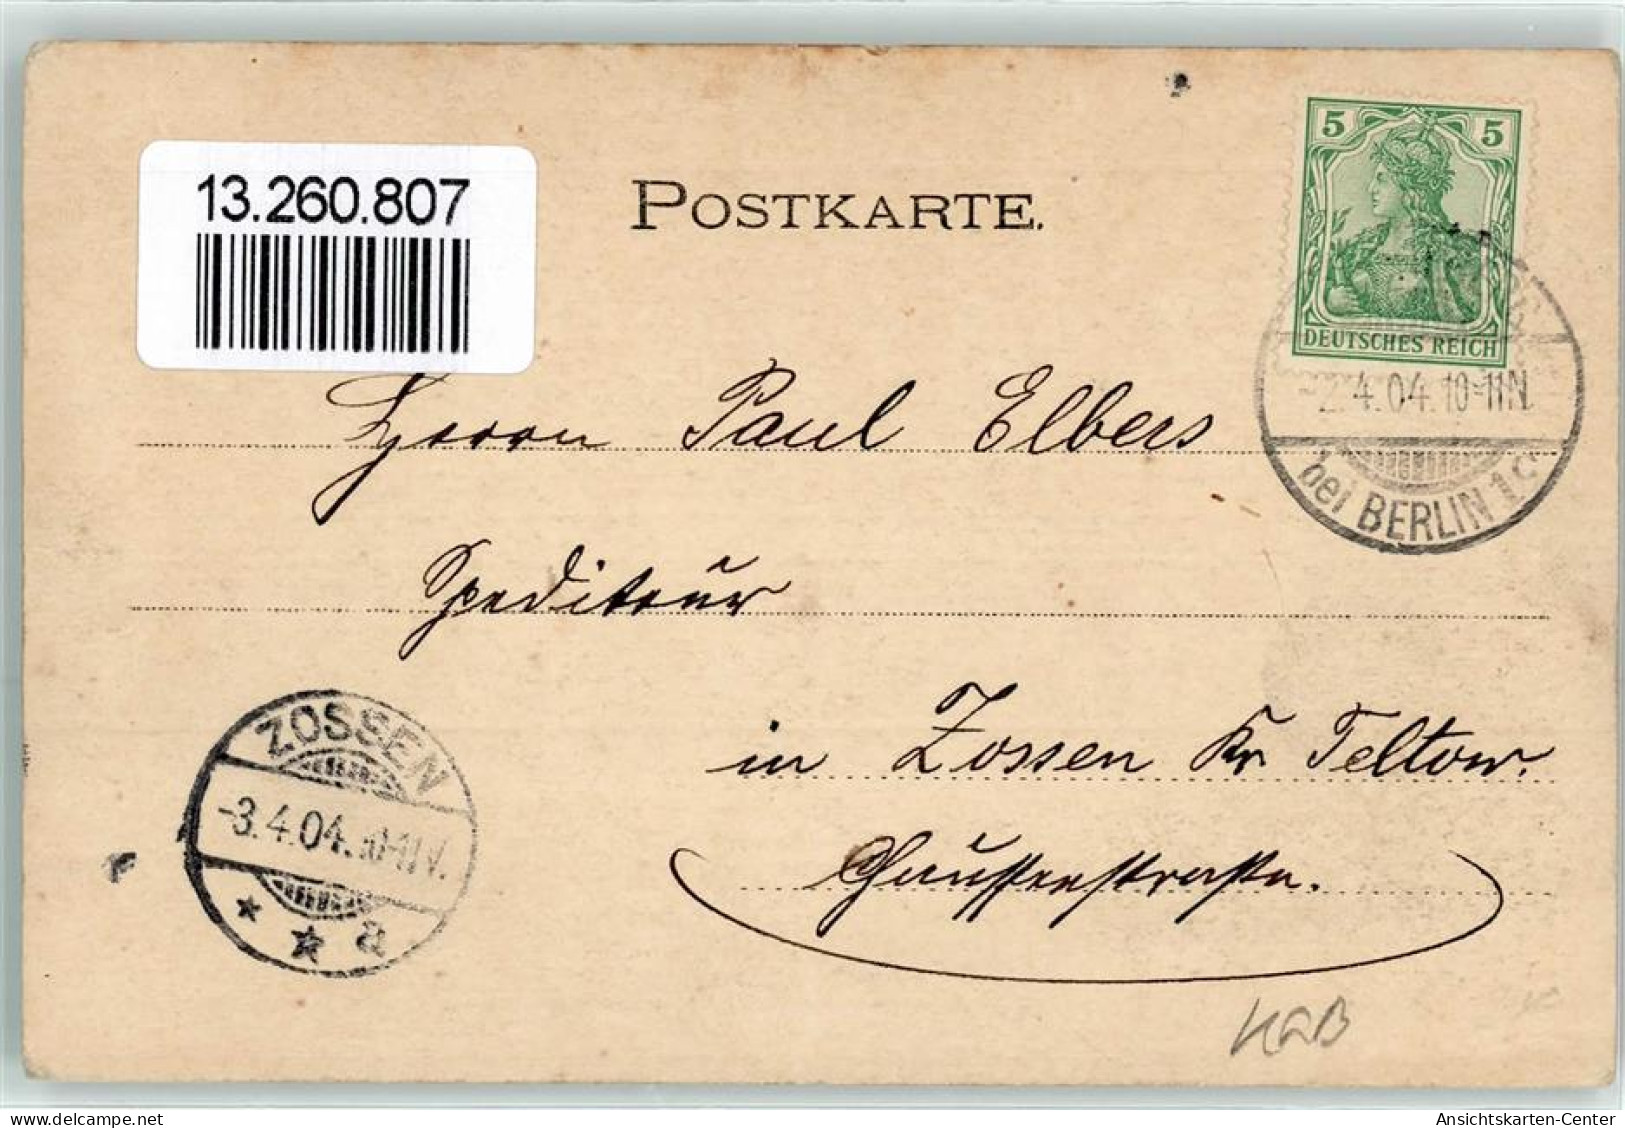 13.260.807
POSTKARTE.
5 5
DEUTSCHES REICH
-2.4.04.10-11N.
bei BERLIN 1 c
Herrn Paul Elbers
Spediteur
in Zossen Kr Teltow.
Chausseestraße.
ZOSSEN
-3.4.04.10-11V.
* * a
www.delcampe.net
Ansichtskarten-Center